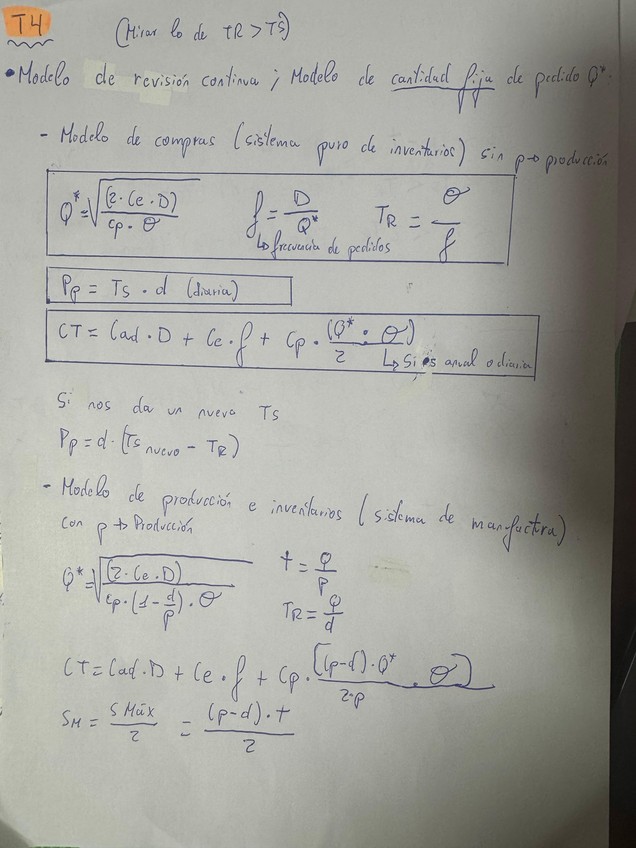 T4 (Mirar lo de TR > TS)
• Modelo de revisión continua ; Modelo de cantidad fija de pedido Q*:
- Modelo de compras (sistema puro de inventarios) sin p → producción
Q* = √((2 · Ce · D) / (cp · θ))    f = D / Q*    TR = θ / f
↳ frecuencia de pedidos
Pp = Ts · d (diaria)
CT = Cad · D + Ce · f + Cp · (Q* · θ) / 2
↳ Si es anual o diaria
Si nos da un nuevo Ts
Pp = d · (Ts nuevo - TR)
- Modelo de producción e inventarios (sistema de manufactura)
con p → Producción
Q* = √((2 · Ce · D) / (cp · (1 - d/p) · θ))    t = Q / p
TR = Q / d
CT = Cad · D + Ce · f + Cp · ((p-d) · Q* · θ) / (2 · p)
SM = S Máx / 2 = (p-d) · t / 2